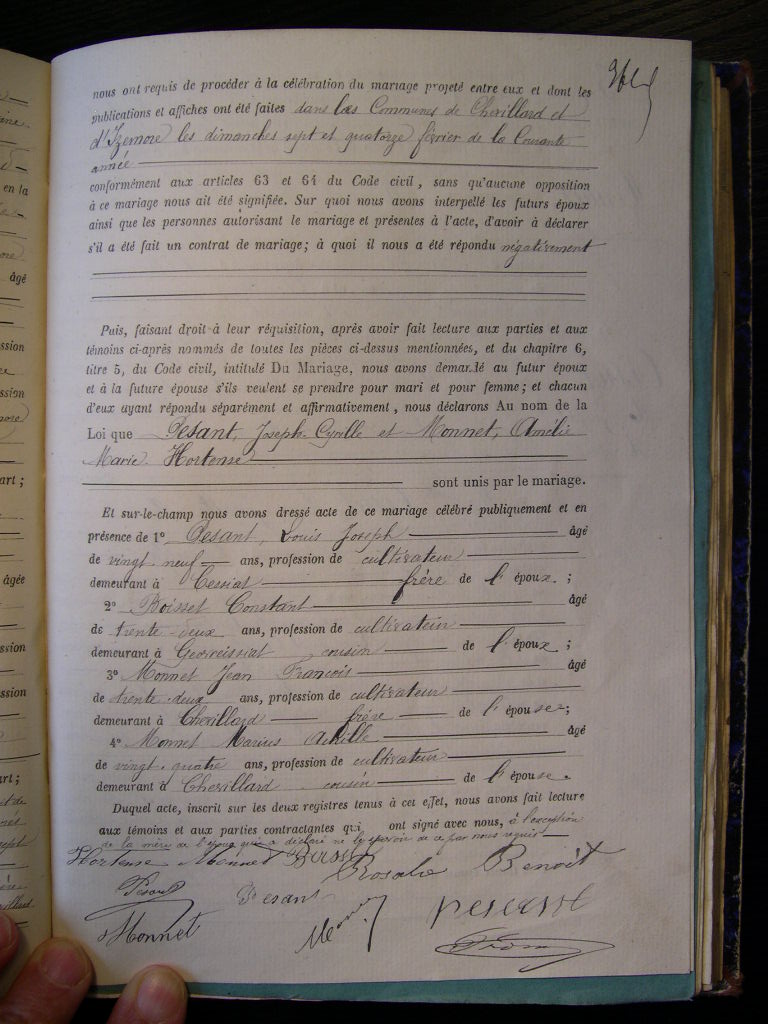 nous ont requis de procéder à la célébration du mariage projeté entre eux et dont les
publications et affiches ont été faites dans les Communes de Chevillard et
d'Izernore les dimanches sept et quatorze février de la Courante
année
conformément aux articles 63 et 64 du Code civil, sans qu'aucune opposition
à ce mariage nous ait été signifiée. Sur quoi nous avons interpellé les futurs époux
ainsi que les personnes autorisant le mariage et présentes à l'acte, d'avoir à déclarer
s'il a été fait un contrat de mariage; à quoi il nous a été répondu négativement
Puis, faisant droit à leur réquisition, après avoir fait lecture aux parties et aux
témoins ci-après nommés de toutes les pièces ci-dessus mentionnées, et du chapitre 6,
titre 5, du Code civil, intitulé Du Mariage, nous avons demandé au futur époux
et à la future épouse s'ils veulent se prendre pour mari et pour femme; et chacun
d'eux ayant répondu séparément et affirmativement, nous déclarons Au nom de la
Loi que Pesant, Joseph Cyrille et Monnet, Amélie
Marie Hortense
sont unis par le mariage.
Et sur-le-champ nous avons dressé acte de ce mariage célébré publiquement et en
présence de 1° Pesant, Louis Joseph âgé
de vingt neuf ans, profession de cultivateur
demeurant à Cessiat frère de l'époux ;
2° Boisset Constant âgé
de trente-deux ans, profession de cultivateur
demeurant à Geovreissiat cousin de l'époux ;
3° Monnet Jean François âgé
de trente deux ans, profession de cultivateur
demeurant à Chevillard frère de l'épouse;
4° Monnet Marius Achille âgé
de vingt-quatre ans, profession de cultivateur
demeurant à Chevillard cousin de l'épouse.
Duquel acte, inscrit sur les deux registres tenus à cet effet, nous avons fait lecture
aux témoins et aux parties contractantes qui ont signé avec nous, à l'exception
de la mère de l'époux qui a déclaré ne le savoir de ce par nous requis
Hortense Monnet Rosalie Benoit
Pesant Pesant
Monnet